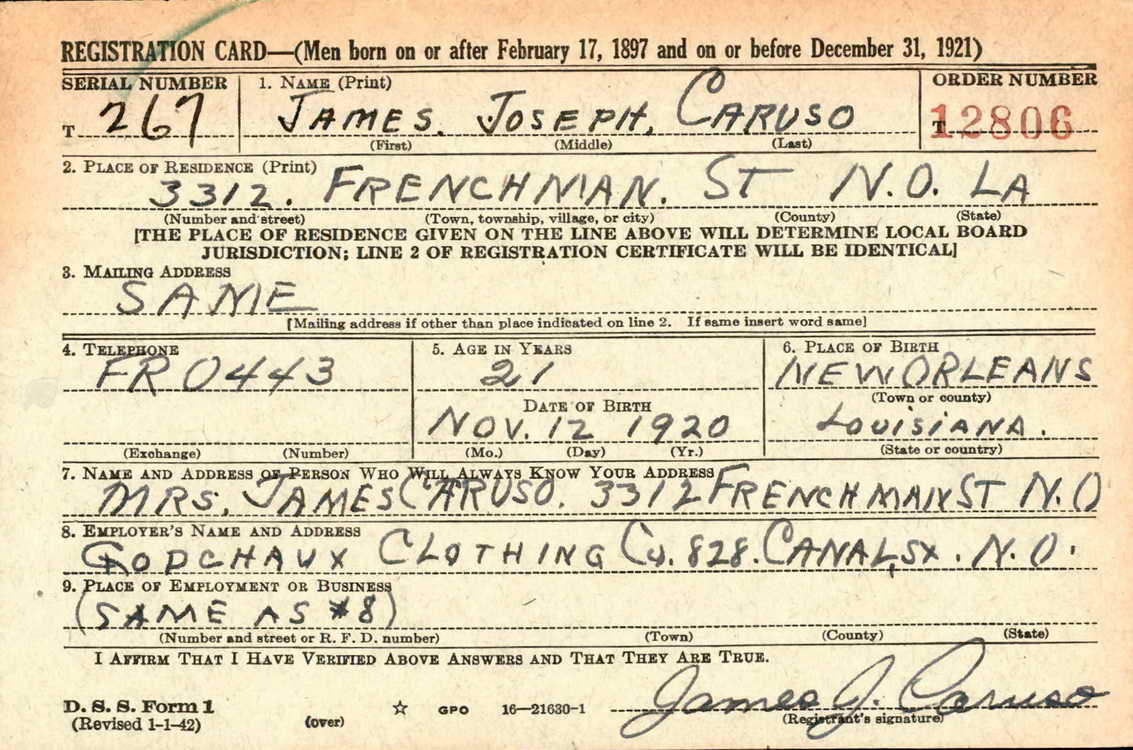 REGISTRATION CARD—(Men born on or after February 17, 1897 and on or before December 31, 1921)
SERIAL NUMBER 1. NAME (Print) ORDER NUMBER
T 267 JAMES. JOSEPH, CARUSO T 12806
(First) (Middle) (Last)
2. PLACE OF RESIDENCE (Print)
3312. FRENCHMAN. ST N.O. LA
(Number and street) (Town, township, village, or city) (County) (State)
[THE PLACE OF RESIDENCE GIVEN ON THE LINE ABOVE WILL DETERMINE LOCAL BOARD
JURISDICTION; LINE 2 OF REGISTRATION CERTIFICATE WILL BE IDENTICAL]
3. MAILING ADDRESS
SAME
[Mailing address if other than place indicated on line 2. If same insert word same]
4. TELEPHONE 5. AGE IN YEARS 6. PLACE OF BIRTH
FR 0443 21 NEW ORLEANS
DATE OF BIRTH (Town or county)
NOV. 12 1920 LOUISIANA.
(Exchange) (Number) (Mo.) (Day) (Yr.) (State or country)
7. NAME AND ADDRESS OF PERSON WHO WILL ALWAYS KNOW YOUR ADDRESS
MRS. JAMES CARUSO. 3312 FRENCHMAN ST N.O
8. EMPLOYER'S NAME AND ADDRESS
GODCHAUX CLOTHING CO. 828. CANAL, ST. N.O.
9. PLACE OF EMPLOYMENT OR BUSINESS
(SAME AS #8)
(Number and street or R. F. D. number) (Town) (County) (State)
I AFFIRM THAT I HAVE VERIFIED ABOVE ANSWERS AND THAT THEY ARE TRUE.
James J. Caruso
D. S. S. Form 1 (over) ☆ GPO 16—21630-1 (Registrant's signature)
(Revised 1-1-42)